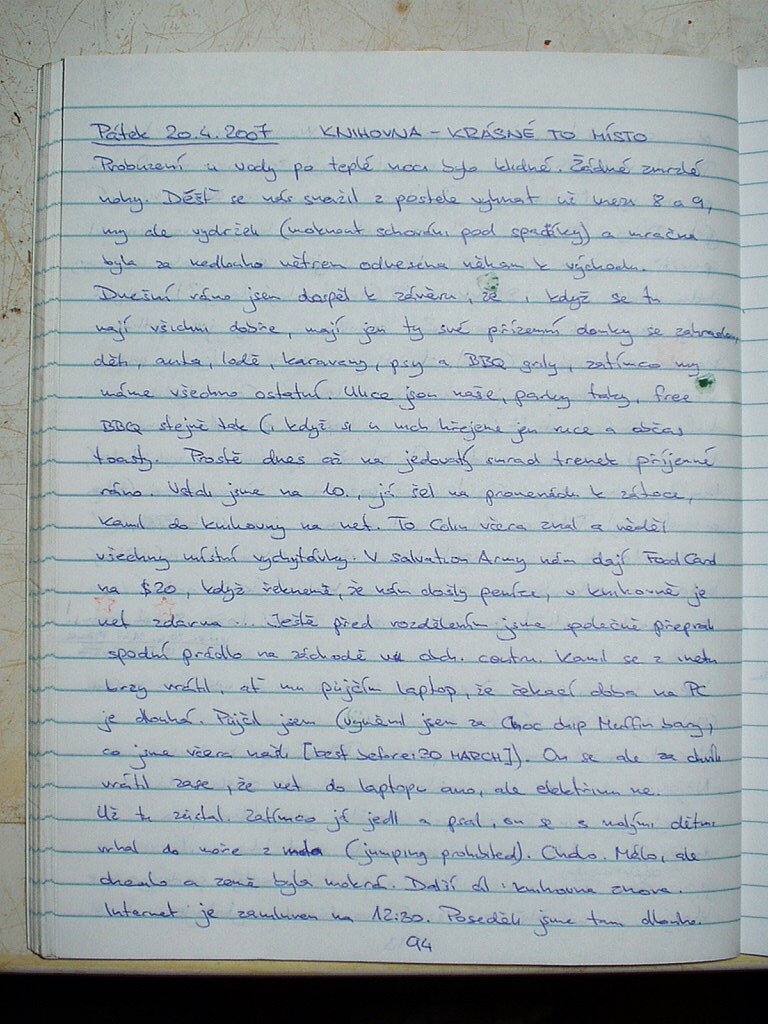 Pátek 20.4.2007 KNIHOVNA - KRÁSNÉ TO MÍSTO
Probuzení u vody po teplé noci bylo klidné. Žádné zmrzlé
nohy. Déšť se nás snažil z postele vyhnat už mezi 8 a 9,
my ale vydrželi (moknout schováni pod spacáky) a mračna
byla za nedlouho větrem odnesena někam k východu.
Dnešní ráno jsem dospěl k závěru, že, když se tu
mají všichni dobře, mají jen ty své přízemní domky se zahradou,
děti, auta, lodě, karavany, psy a BBQ grily, zatímco my
máme všechno ostatní. Ulice jsou naše, parky taky, free
BBQ stejně tak (i když si u nich hřejeme jen ruce a občas
toasty. Prostě dnes až na jedovatý smrad trenek příjemné
ráno. Vstali jsme na 10., já šel na promenádu k zátoce,
Kamil do knihovny na net. To Colin včera znal a věděl
všechny místní vychytávky. V Salvation Army nám dají FoodCard
na $20, když řekneme, že nám došly peníze, v knihovně je
net zdarma ... Ještě před rozdělením jsme společně přeprali
spodní prádlo na záchodě v obch. centru. Kamil se z netu
brzy vrátil, ať mu půjčím laptop, že čekací doba na PC
je dlouhá. Půjčil jsem (vyměnil jsem za Choc chip Muffin bary,
co jsme včera našli [best before: 30 MARCH]). On se ale za chvíli
vrátil zase, že net do laptopu ano, ale elektřinu ne.
Už tu zůstal. Zatímco já jedl a psal, on se s malými dětmi
vrhal do moře z mola (jumping prohibited). Chcalo. Málo, ale
chcalo a země byla mokrá. Další cíl: knihovna znova.
Internet je zamluven na 12:30. Poseděli jsme tam dlouho.
94